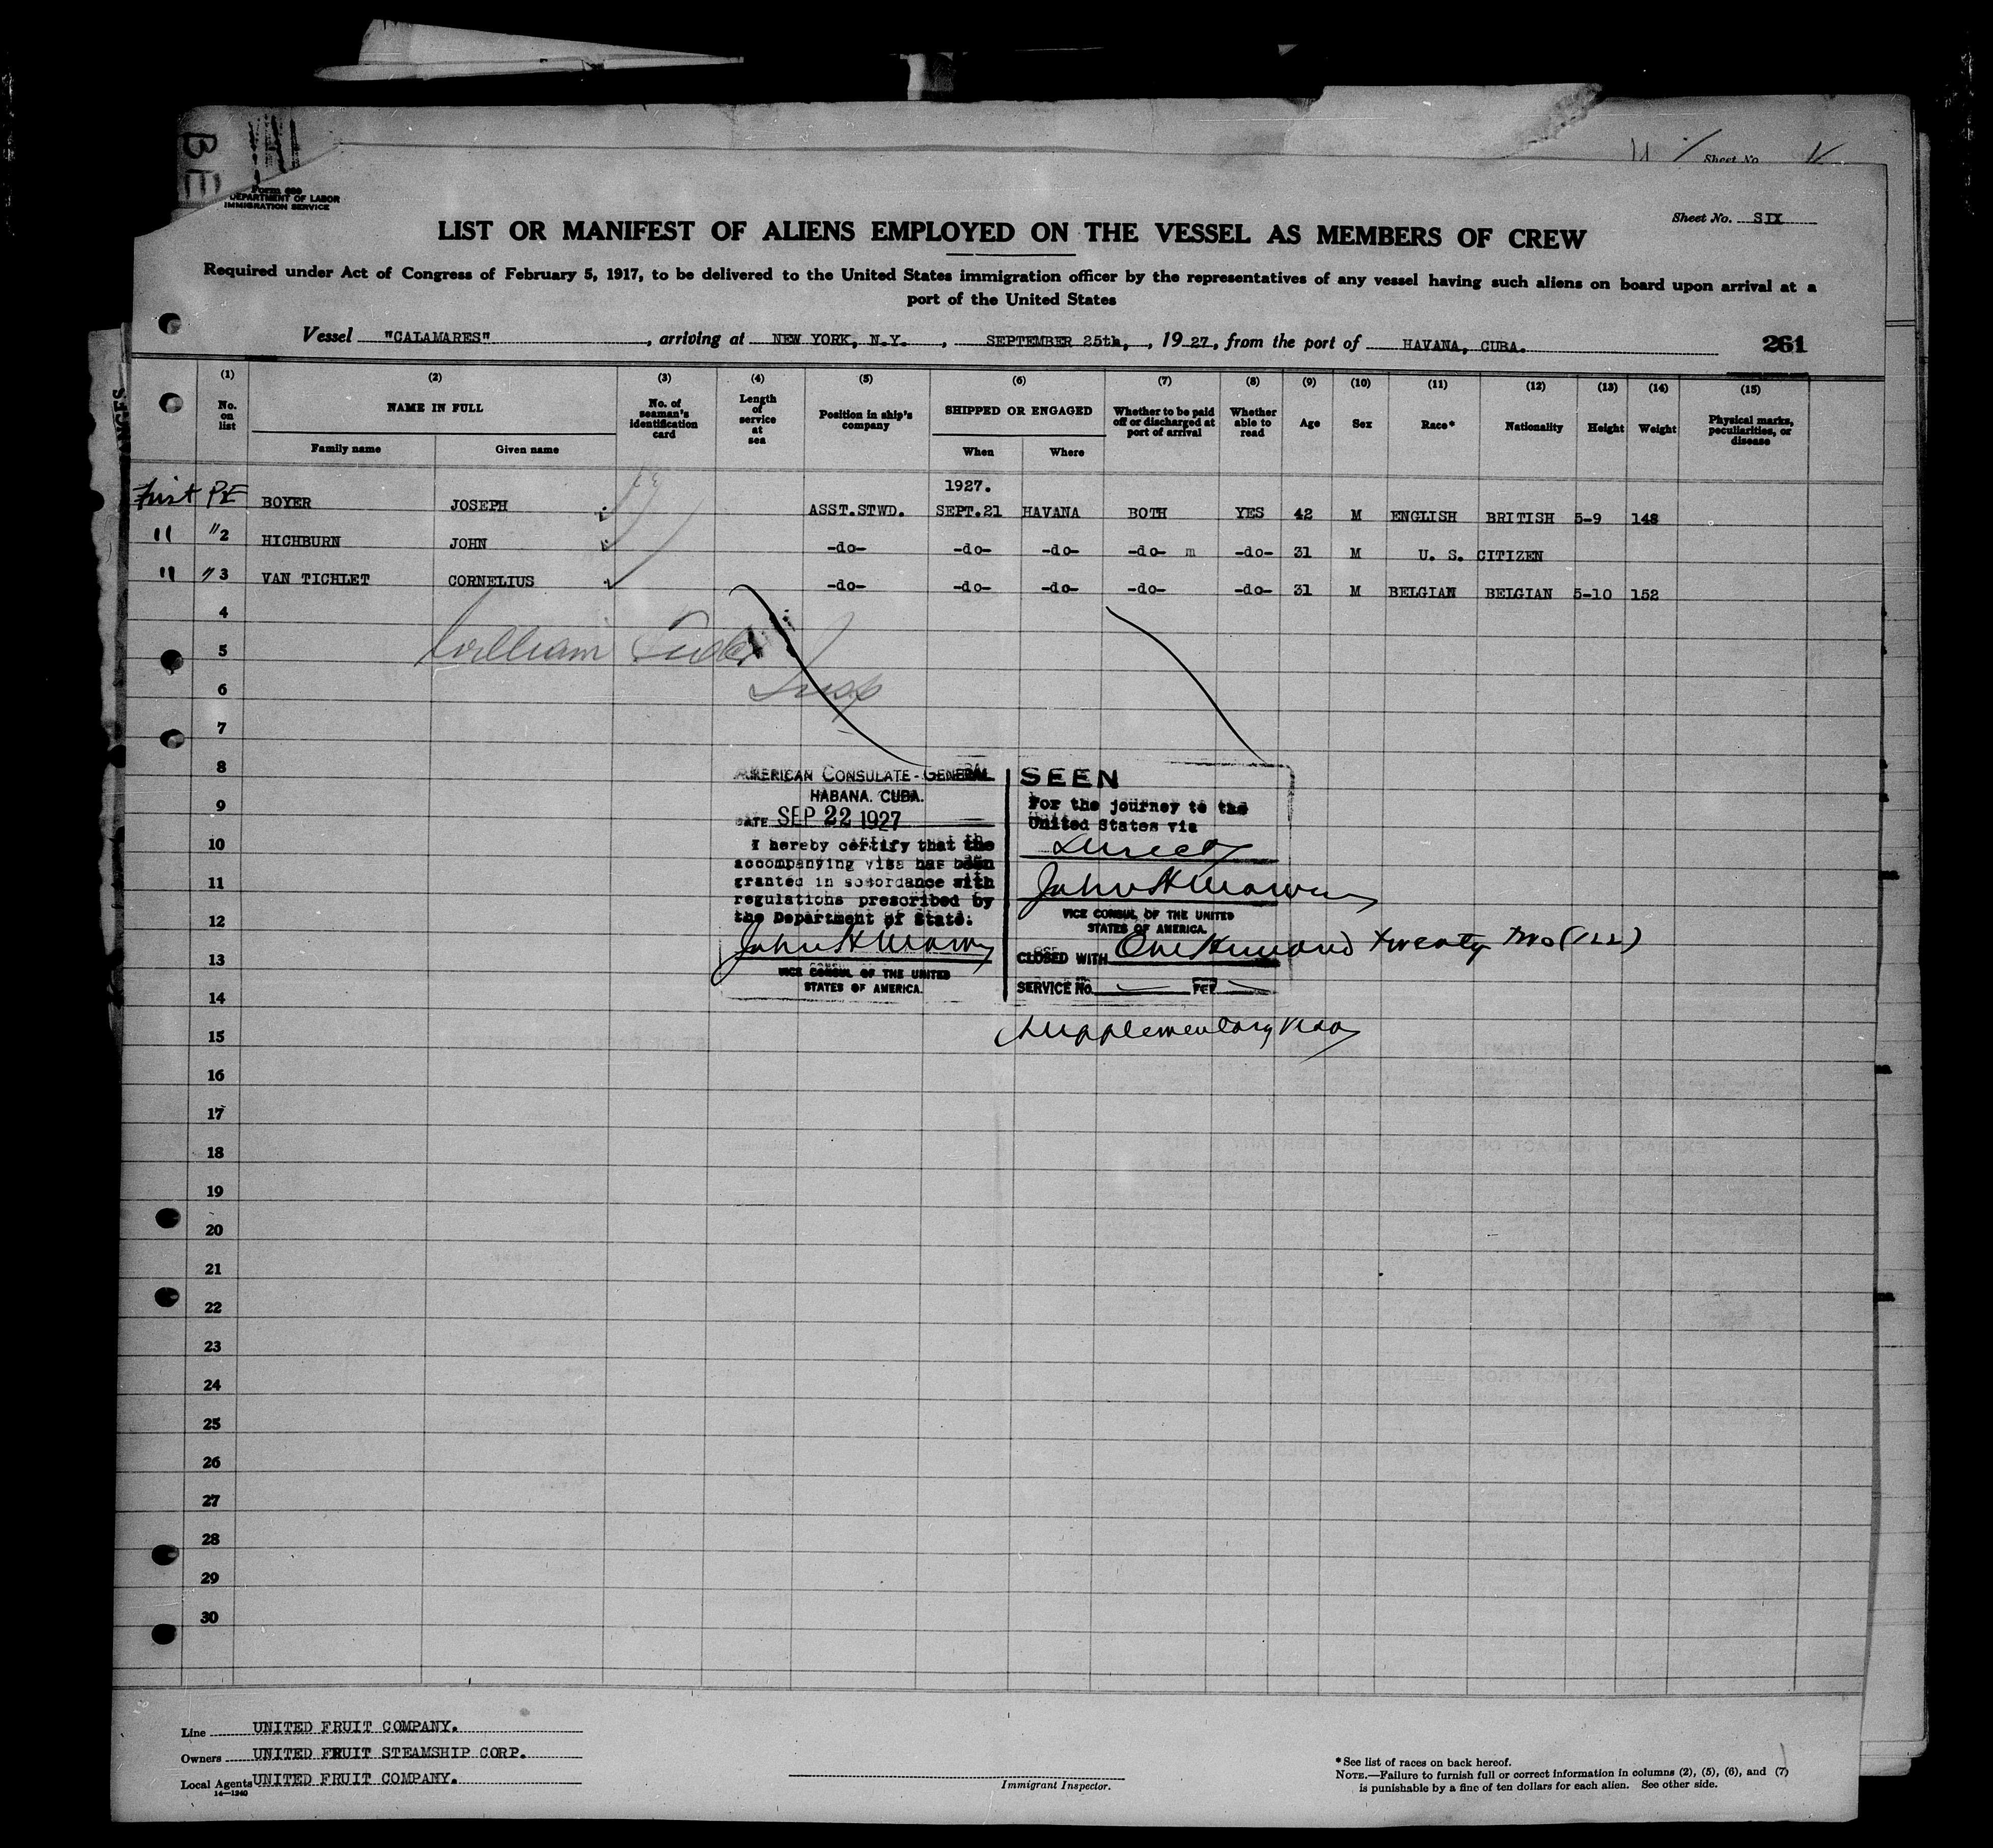 BE
Sheet No.
Form 680
DEPARTMENT OF LABOR
IMMIGRATION SERVICE
Sheet No. SIX
LIST OR MANIFEST OF ALIENS EMPLOYED ON THE VESSEL AS MEMBERS OF CREW
Required under Act of Congress of February 5, 1917, to be delivered to the United States immigration officer by the representatives of any vessel having such aliens on board upon arrival at a
port of the United States
Vessel "CALAMARES", arriving at NEW YORK, N.Y., SEPTEMBER 25th, 1927, from the port of HAVANA, CUBA. 261
(1) (2) (3) (4) (5) (6) (7) (8) (9) (10) (11) (12) (13) (14) (15)
No. on list NAME IN FULL No. of seaman's identification card Length of service at sea Position in ship's company SHIPPED OR ENGAGED Whether to be paid off or discharged at port of arrival Whether able to read Age Sex Race* Nationality Height Weight Physical marks, peculiarities, or disease
Family name Given name When Where
1927.
First PE BOYER JOSEPH ASST.STWD. SEPT.21 HAVANA BOTH YES 42 M ENGLISH BRITISH 5-9 148
" " 2 HICHBURN JOHN -do- -do- -do- -do- m -do- 31 M U. S. CITIZEN
" " 3 VAN TICHLET CORNELIUS -do- -do- -do- -do- -do- 31 M BELGIAN BELGIAN 5-10 152
4
William
5
Insp
6
7
8
9
10
11
12
13
14
15
16
17
18
19
20
21
22
23
24
25
26
27
28
29
30
AMERICAN CONSULATE-GENERAL
HABANA. CUBA.
DATE SEP 22 1927
I hereby certify that the
accompanying visa has been
granted in accordance with
regulations prescribed by
the Department of State.
VICE CONSUL OF THE UNITED
STATES OF AMERICA.
SEEN
For the journey to the
United States via
Direct
VICE CONSUL OF THE UNITED
STATES OF AMERICA.
CLOSED WITH One Hundred twenty two (122)
SERVICE NO. FEE
Supplementary visa
Line UNITED FRUIT COMPANY.
Owners UNITED FRUIT STEAMSHIP CORP.
Local Agents UNITED FRUIT COMPANY.
14-1240
Immigrant Inspector.
*See list of races on back hereof.
NOTE.—Failure to furnish full or correct information in columns (2), (5), (6), and (7)
is punishable by a fine of ten dollars for each alien. See other side.